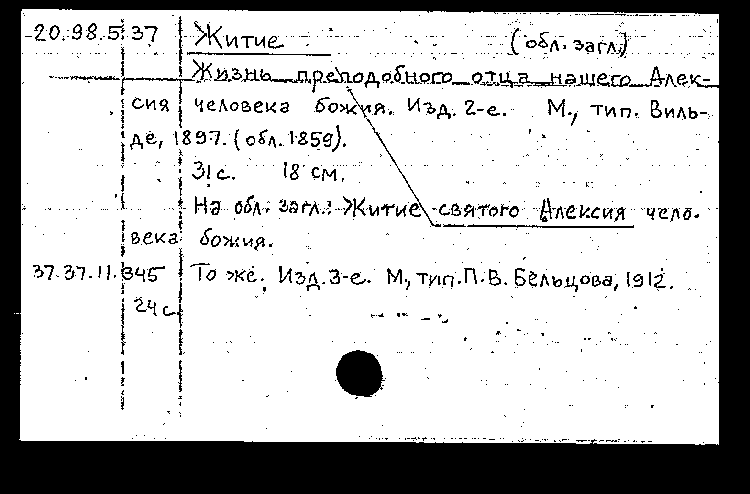 20.98.5.37 Житие (обл. загл.)
Жизнь преподобного отца нашего Алек-
сия человека божия. Изд. 2-е. М., тип. Виль-
де, 1897. (обл. 1859).
31 с. 18 см.
На обл. загл.: Житие святого Алексия чело-
века божия.
37.37.11.345 То же. Изд. 3-е. М., тип. П.В. Бельцова, 1912.
24 с.